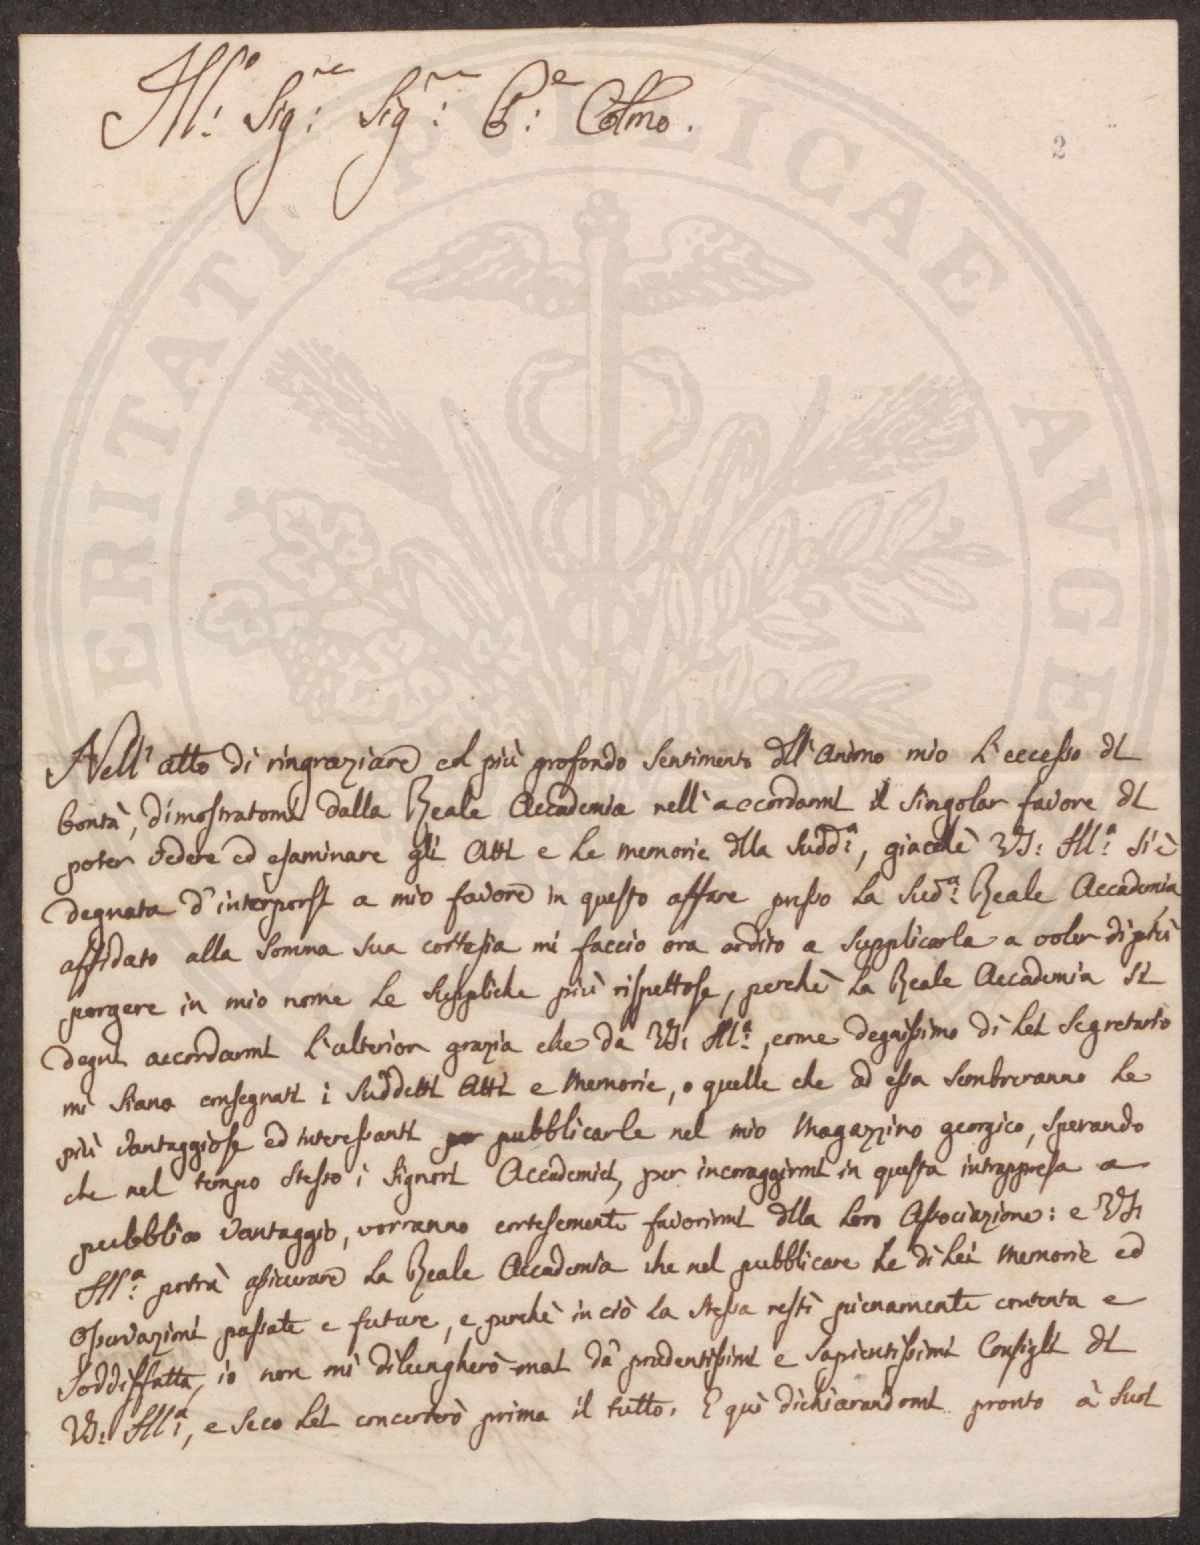 Ill:º Sig:re Sig:re P:e Colmo.
2
Nell'atto di ringraziare col più profondo sentimento dell'animo mio l'eccesso di
bontà, dimostratomi dalla Reale Accademia nell'accordarmi il singolar favore di
poter vedere ed esaminare gli Atti e le memorie della Sudd:ª, giacchè VS: Ill:ª si è
degnata d'interporsi a mio favore in questo affare presso la Sud:ª Reale Accademia
affidato alla somma sua cortesia mi faccio ora ardito a supplicarla a voler di più
porgere in mio nome le suppliche più rispettose, perchè la Reale Accademia si
degni accordarmi l'ulterior grazia che da VS: Ill:ª, come degnissimo di Lei Segretario
mi siano consegnati i suddetti Atti e Memorie, o quelle che ad essa sembreranno le
più vantaggiose ed interessanti per pubblicarle nel mio Magazzino georgico, sperando
che nel tempo stesso i Signori Accademici, per incoraggirmi in questa intrappresa a
pubblico vantaggio, vorranno cortesemente favorirmi della loro Associazione: e VS:
Ill:ª potrà assicurare la Reale Accademia che nel pubblicare le di Lei Memorie ed
Osservazioni passate e future, e perchè in ciò la stessa resti pienamente contenta e
soddisfatta, io non mi dilungherò mai da' prudentissimi e sapientissimi Consigli di
VS: Ill:ª, e seco Lei concerterò prima il tutto. E quì dichiarandomi pronto à suoi